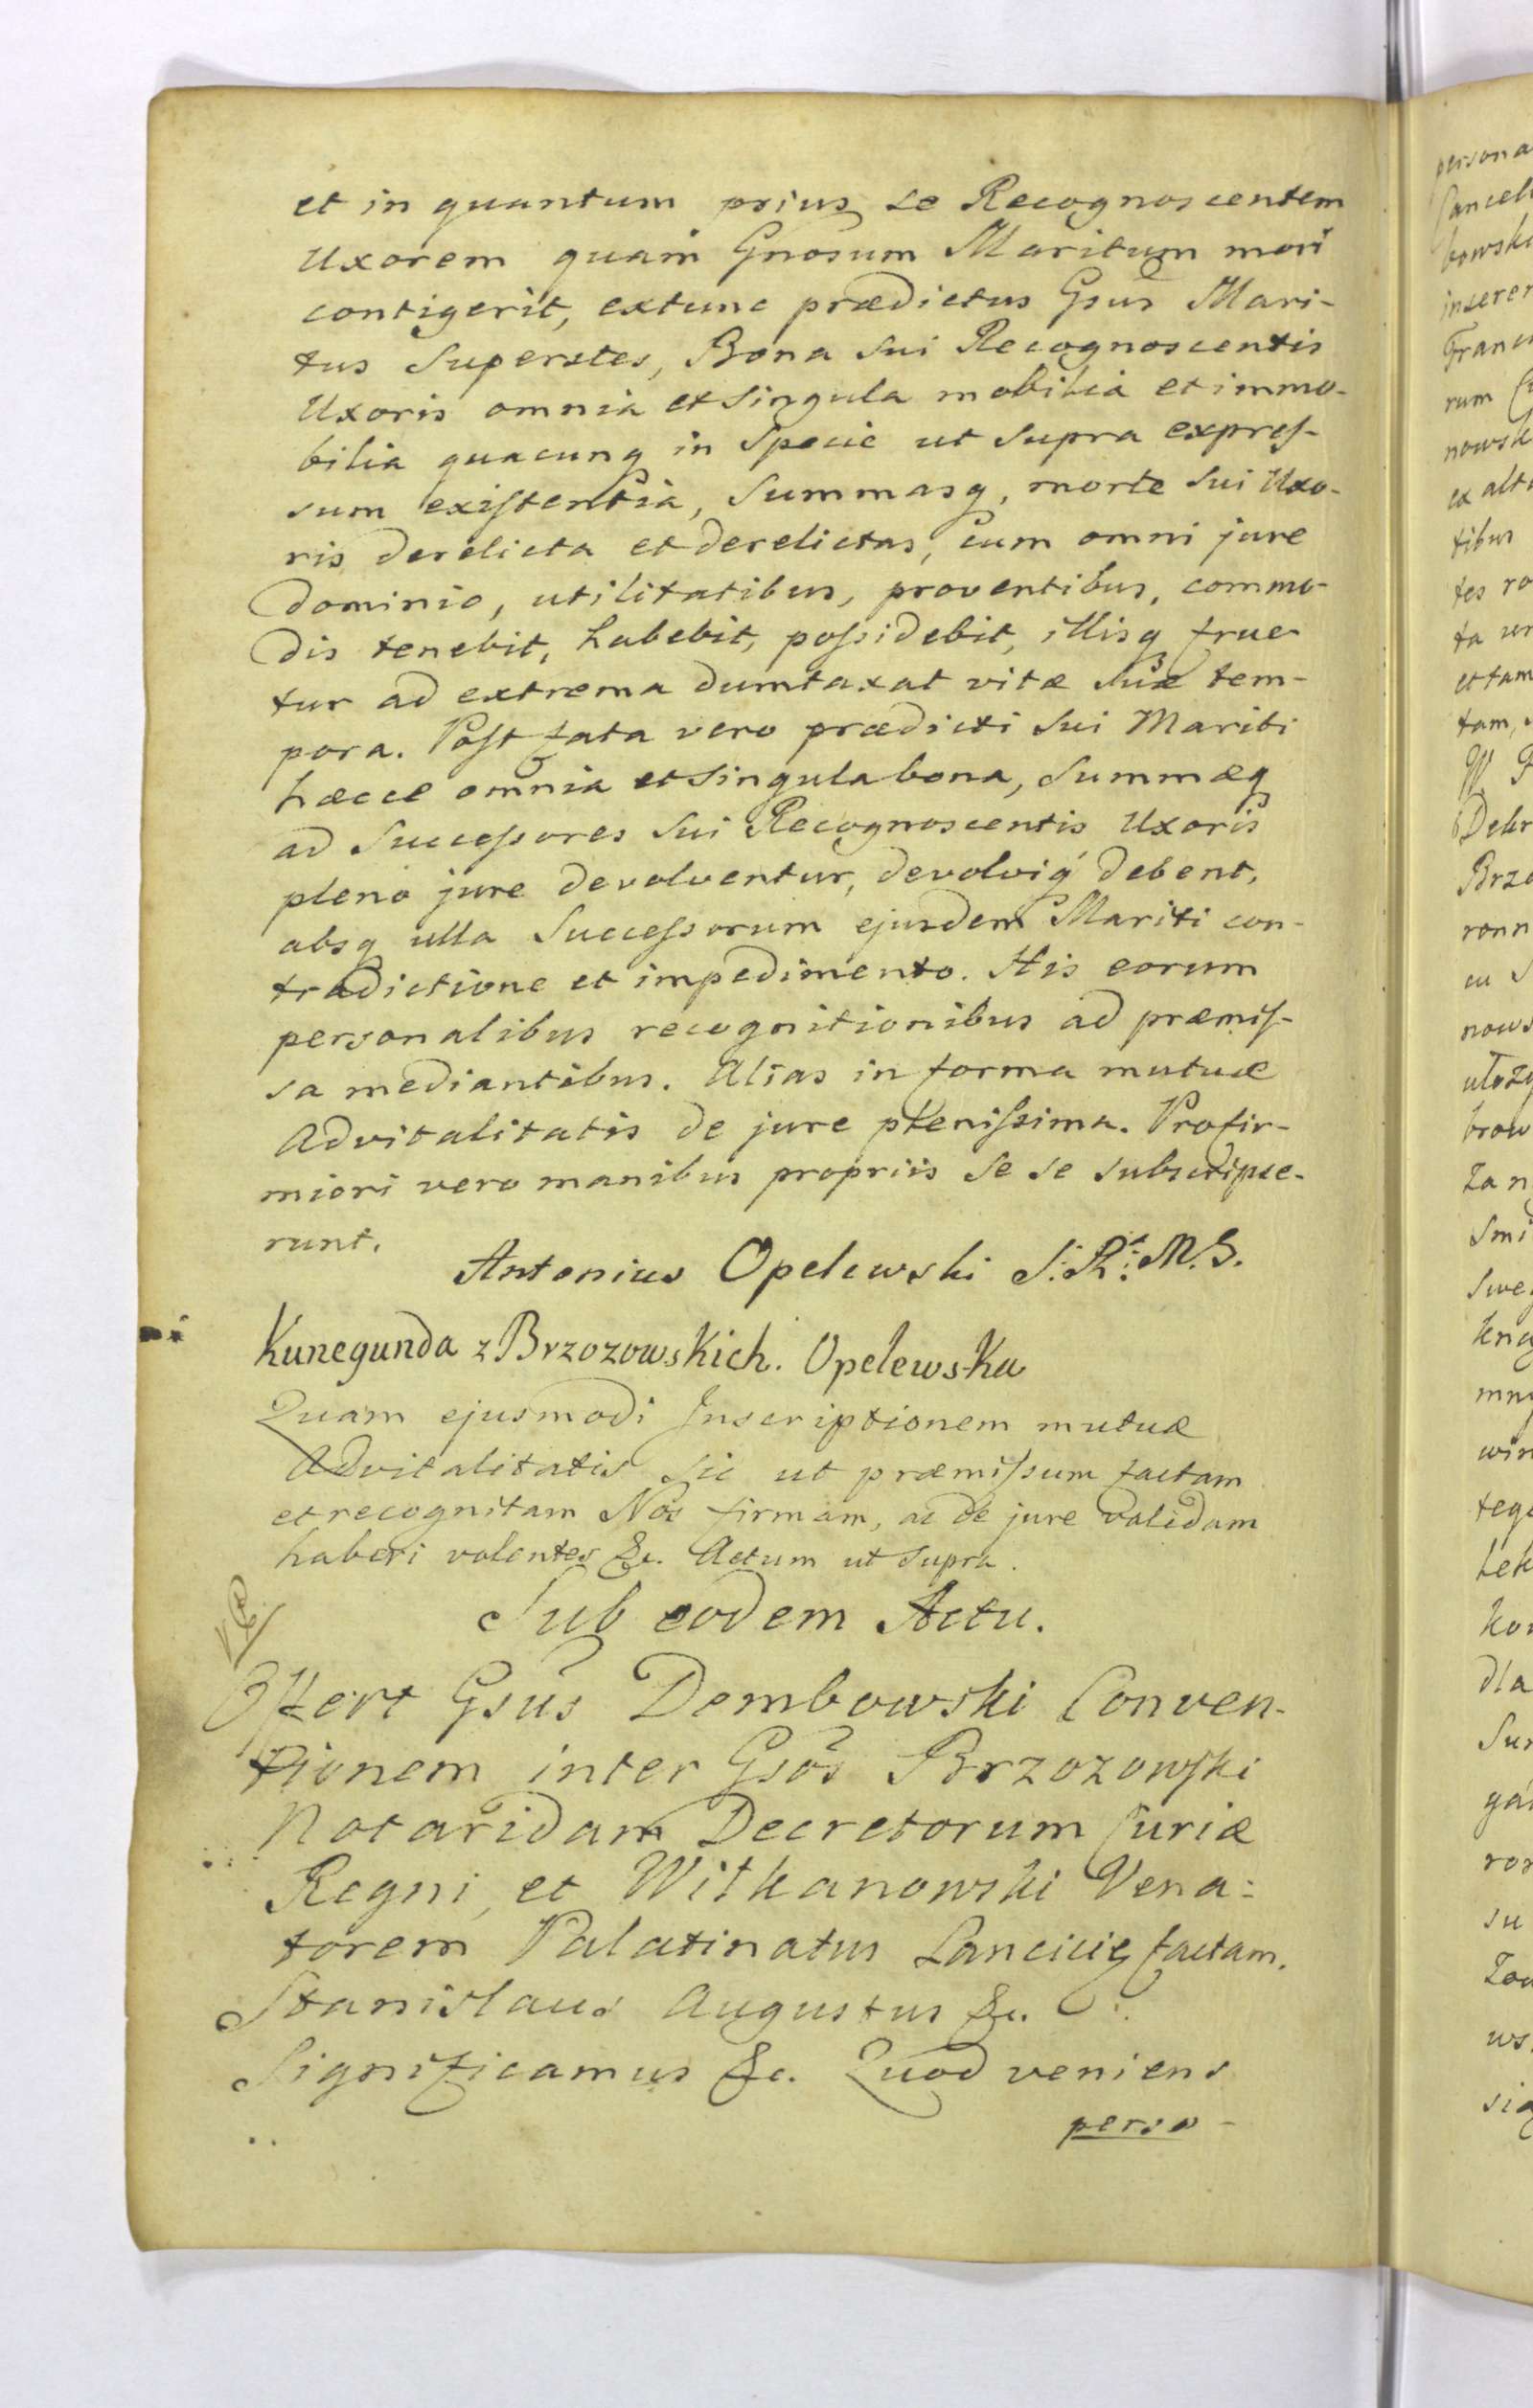 et in quantum prius se Recognoscentem
Uxorem quam Gnosum Maritum mori
contigerit, extunc prædictus Gsus Mari-
tus Superstes, Bona sui Recognoscentis
Uxoris omnia et singula mobilia et immo-
bilia quacunq in Specie ut supra expreſ-
sum exiſtentia, Summasq, morte sui Uxo-
ris derelicta et derelictas, cum omni jure
Dominio, utilitatibus, proventibus, commo-
dis tenebit, habebit, poſsidebit, illisq frue-
tur ad extrema dumtaxat vitæ suæ tem-
pora. Poſt fata vero prædicti sui Mariti
hæcce omnia et singula bona, Summæq
ad Succeſsores sui Recognoscentis Uxoris
pleno jure devolventur, devolviq debent,
absq ulla Succeſsorum ejusdem Mariti con-
tradictione et impedimento. His eorum
personalibus recognitionibus ad præmiſ-
sa mediantibus. Alias in forma mutuæ
Advitalitatis de jure pleniſsima. Profir-
miori vero manibus propriis se se subscripse-
runt.
Antonius Opelewski S. R. M. S.
Kunegunda z Brzozowskich. Opelewska
Quam ejusmodi Inscriptionem mutuæ
Advitalitatis sic ut præmiſsum factam
et recognitam Nos firmam, ac de jure validam
haberi volentes &c. Actum ut supra.
Sub eodem Actu.
Offert Gsus Dembowski Conven-
tionem inter Gsos Brzozowſki
Notaridam Decretorum Curiæ
Regni, et Witkanowski Vena:
torem Palatinatus Lancicię factam.
Stanislaus Augustus &c.
Significamus &c. Quod veniens
perso-
persona
bowski
inserer
Franc
rum
nowsk
ex alt
tibus
tes ro
ta
et tam
tam,
Brzo
ronn
nows
brow
Zan
Smi
Swe
mny
win
dla
su
ws